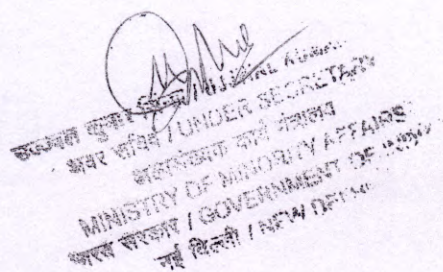 उज्ज्वल कुमार
अवर सचिव / UNDER SECRETARY
अल्पसंख्यक कार्य मंत्रालय
MINISTRY OF MINORITY AFFAIRS
भारत सरकार / GOVERNMENT OF
नई दिल्ली / NEW DELHI